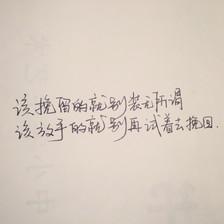 该挽留的就别装无所谓
该放手的就别再试着去挽回.